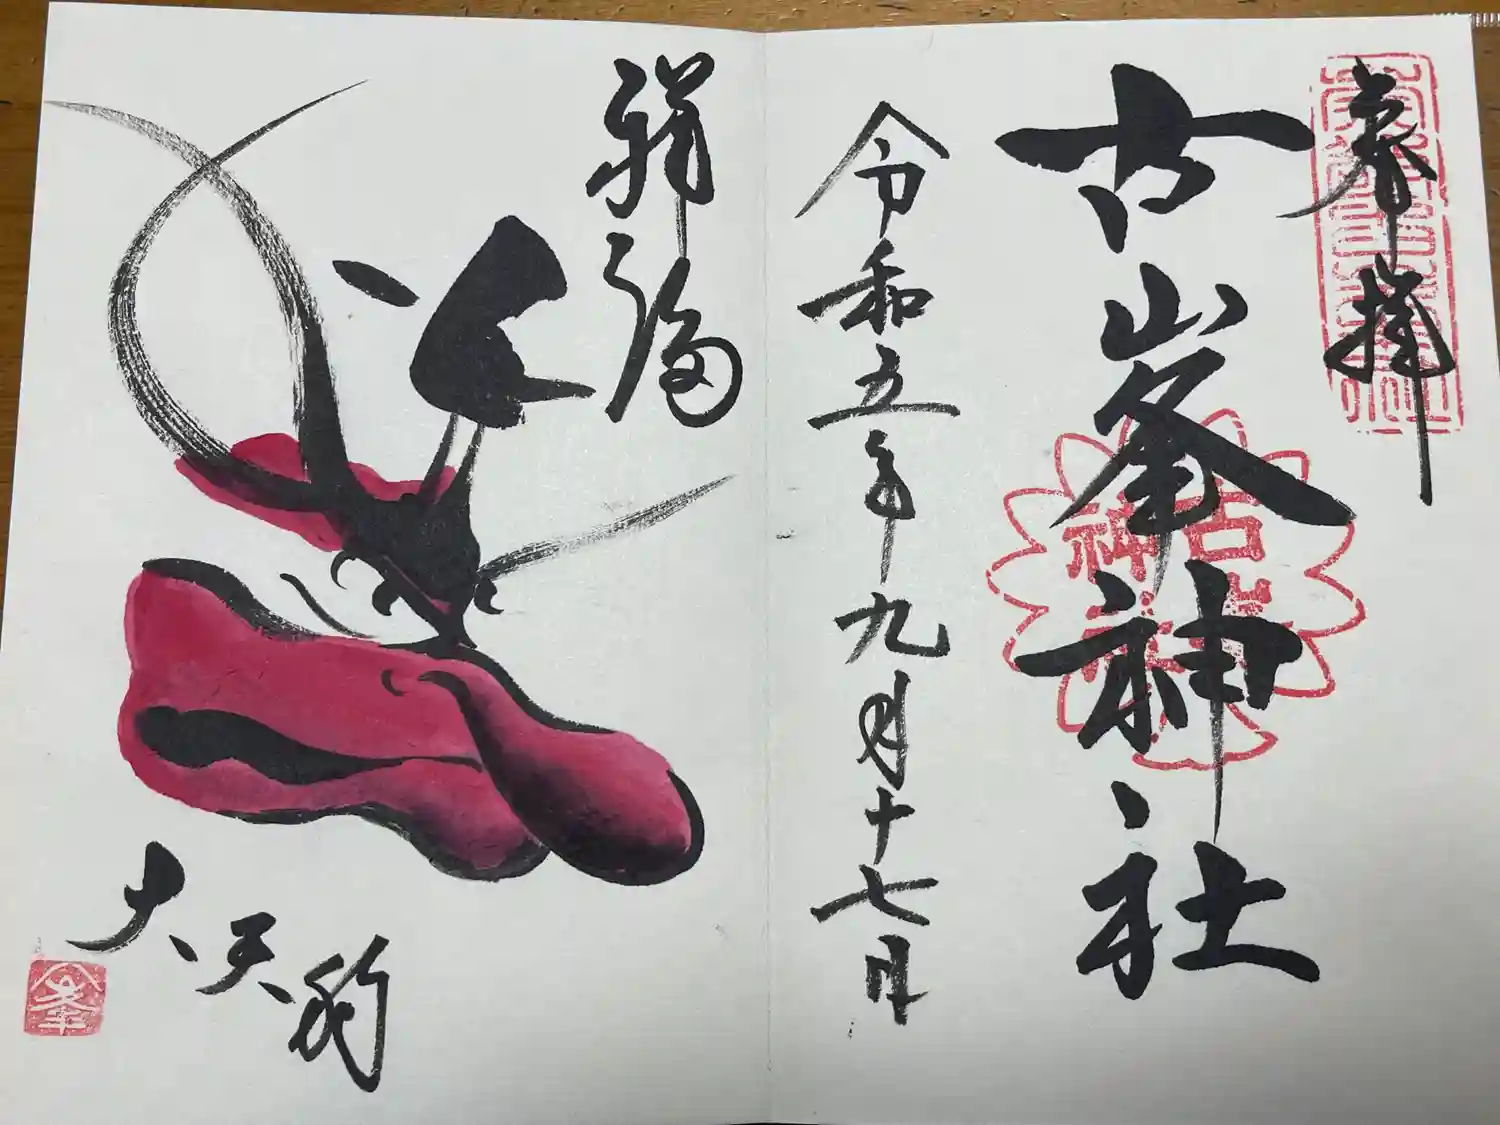 奉拝
古峯神社
令和五年九月十七日
祥福
大天狗
古峯神社